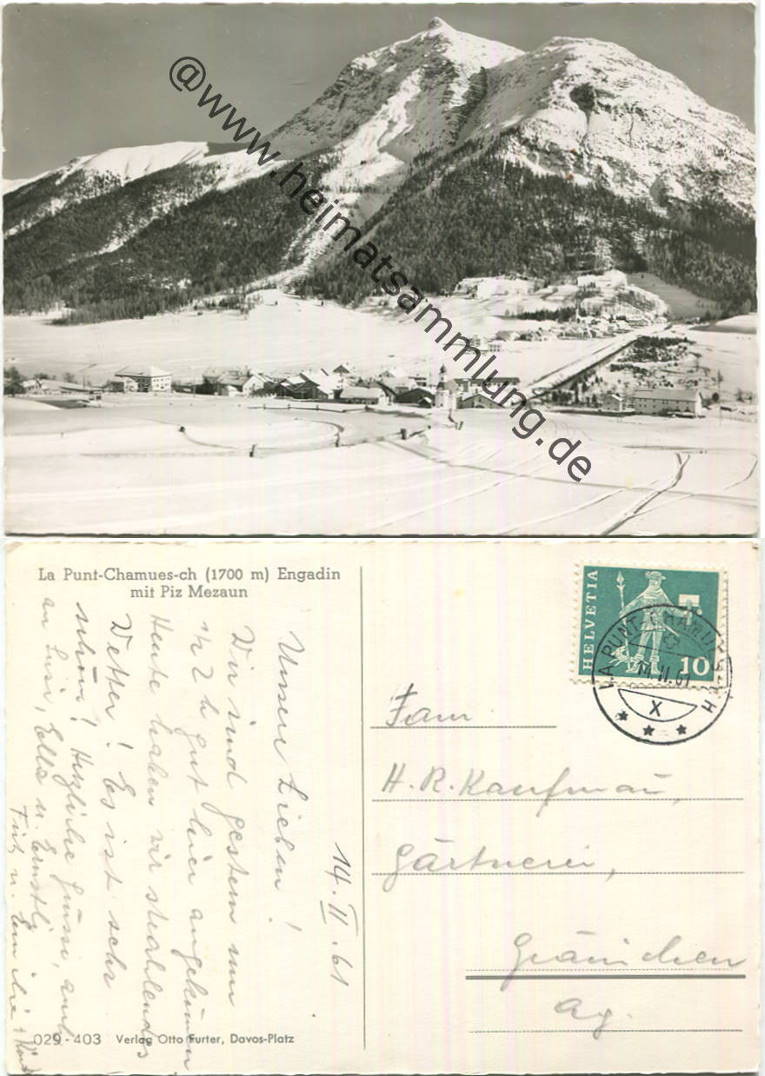 @www.heimatsammlung.de
La Punt-Chamues-ch (1700 m) Engadin
mit Piz Mezaun
HELVETIA
10
LA PUNT-CHAMUES-CH
14.II.61
X
14. II. 61
Unsere Lieben!
Wir sind gestern um
½2 h gut hier angekommen
Heute haben wir strahlendes
Wetter! Es ist sehr
schön! Herzliche Grüsse, auch
an Lusi, Ella u. Ernstli
Fritz u. Emilie
Fam
H. R. Kaufmann,
Gärtnerei,
Gränichen
Ag.
029-403 Verlag Otto Furter, Davos-Platz